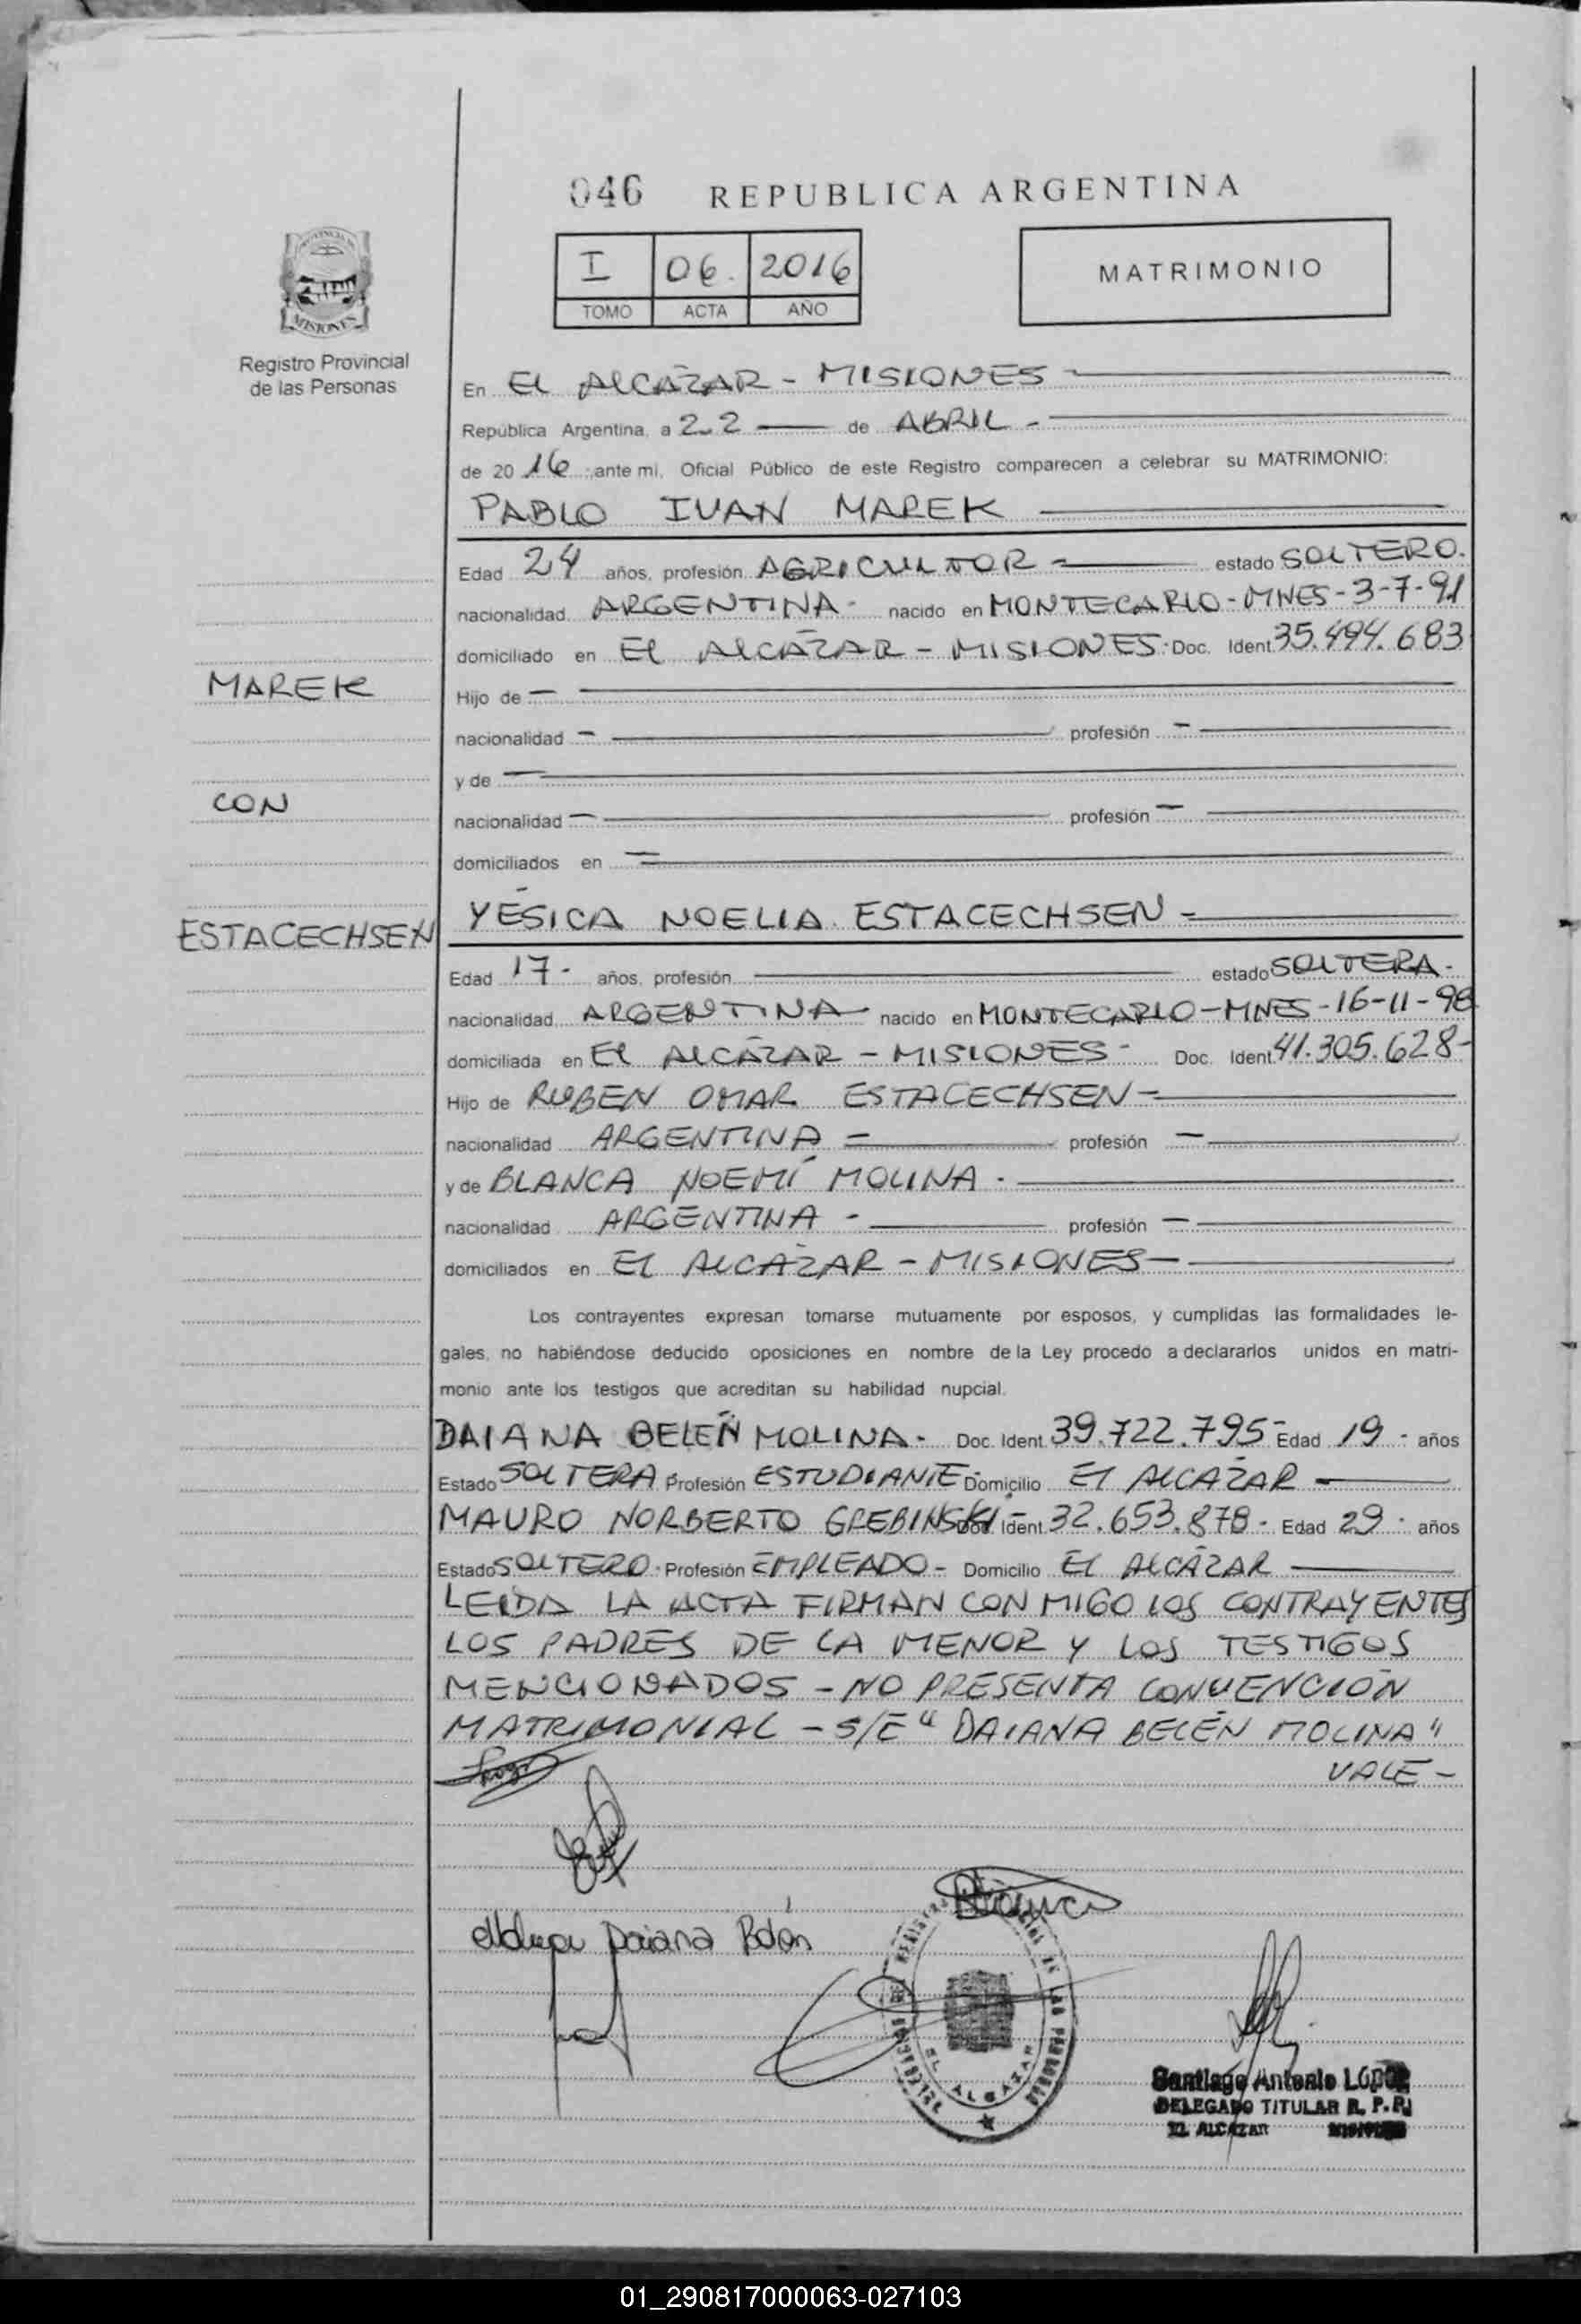 046 REPUBLICA ARGENTINA
I 06. 2016
TOMO ACTA AÑO
MATRIMONIO
PROVINCIA DE
MISIONES
Registro Provincial
de las Personas
En EL ALCÁZAR - MISIONES -
República Argentina, a 22 de ABRIL -
de 2016 ;ante mi, Oficial Público de este Registro comparecen a celebrar su MATRIMONIO:
PABLO IVAN MAREK
Edad 24 años, profesión AGRICULTOR - estado SOLTERO.
nacionalidad ARGENTINA - nacido en MONTECARLO - MNES - 3-7-91
domiciliado en EL ALCÁZAR - MISIONES - Doc. Ident 35.494.683
MAREK
Hijo de -
nacionalidad - profesión -
y de -
CON
nacionalidad - profesión -
domiciliados en -
YÉSICA NOELIA ESTACECHSEN -
ESTACECHSEN
Edad 17 - años, profesión estado SOLTERA -
nacionalidad ARGENTINA nacido en MONTECARLO - MNES - 16-11-98
domiciliada en EL ALCÁZAR - MISIONES - Doc. Ident 41.305.628-
Hijo de RUBEN OMAR ESTACECHSEN -
nacionalidad ARGENTINA - profesión -
y de BLANCA NOEMÍ MOLINA -
nacionalidad ARGENTINA - profesión -
domiciliados en EL ALCÁZAR - MISIONES -
Los contrayentes expresan tomarse mutuamente por esposos, y cumplidas las formalidades le-
gales, no habiéndose deducido oposiciones en nombre de la Ley procedo a declararlos unidos en matri-
monio ante los testigos que acreditan su habilidad nupcial.
DAIANA BELÉN MOLINA - Doc. Ident 39.722.795- Edad 19 - años
Estado SOLTERA Profesión ESTUDIANTE - Domicilio EL ALCÁZAR -
MAURO NORBERTO GREBINSKI - Doc. Ident 32.653.878 - Edad 29 - años
Estado SOLTERO - Profesión EMPLEADO - Domicilio EL ALCÁZAR
LEIDA LA ACTA FIRMAN CONMIGO LOS CONTRAYENTES
LOS PADRES DE LA MENOR Y LOS TESTIGOS
MENCIONADOS - NO PRESENTA CONVENCIÓN
MATRIMONIAL - S/E "DAIANA BELÉN MOLINA"
VALE -
Blanca
Molina Daiana Belén
EL ALCAZAR
Santiago Antonio LÓPEZ
DELEGADO TITULAR R. P. P.
EL ALCAZAR MISIONES
01_290817000063-027103